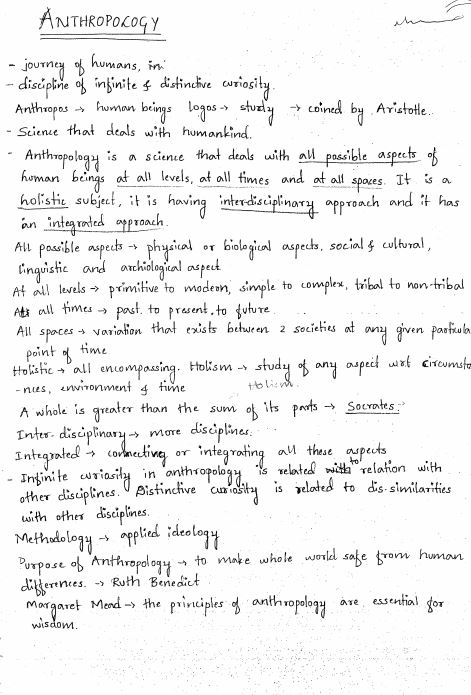 ANTHROPOLOGY
- journey of humans, in
- discipline of infinite & distinctive curiosity.
Anthropos → human beings logos → study → coined by Aristotle.
- Science that deals with humankind.
- Anthropology is a science that deals with all possible aspects of
human beings at all levels, at all times and at all spaces. It is a
holistic subject, it is having inter-disciplinary approach and it has
an integrated approach.
All possible aspects → physical or biological aspects, social & cultural,
linguistic and archiological aspect
At all levels → primitive to modern, simple to complex, tribal to non-tribal
At all times → past to present, to future
All spaces → variation that exists between 2 societies at any given particular
point of time
Holistic → all encompassing. Holism → study of any aspect wrt circumsta
-nces, environment & time Holism
A whole is greater than the sum of its parts → Socrates.
Inter-disciplinary → more disciplines.
Integrated → connecting or integrating all these aspects
- Infinite curiosity in anthropology is related to relation with
other disciplines. Distinctive curiosity is related to dis-similarities
with other disciplines.
Methodology → applied ideology
Purpose of Anthropology → to make whole world safe from human
differences. → Ruth Benedict
Margaret Mead → the principles of anthropology are essential for
wisdom.